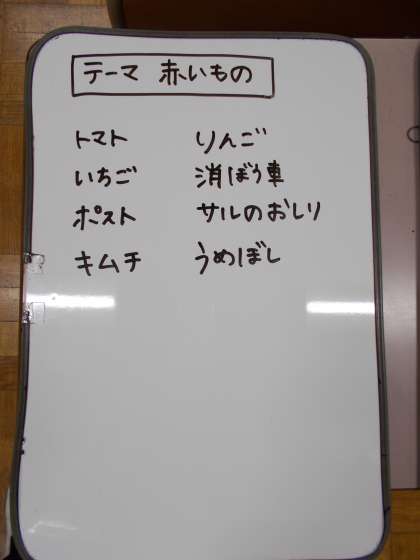 テーマ 赤いもの
トマト りんご
いちご 消ぼう車
ポスト サルのおしり
キムチ うめぼし